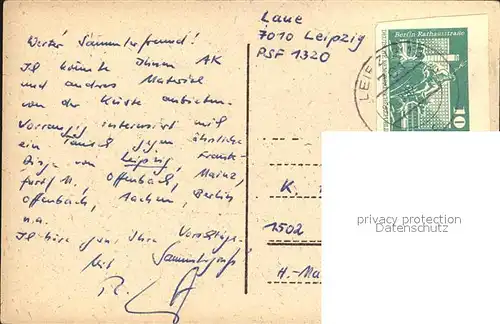 Werter Sammlerfreund!
Ich könnte Ihnen AK
und andres Material
von der Küste anbieten.
Vorrangig interessiert mich
ein Tausch gegen ähnliche
Dinge von Leipzig, Frank-
furt M., Offenbach, Mainz,
Offenbach, Aachen, Berlin
u.a.
Ich höre gern Ihre Vorschläge.
Mit Sammlergruß
R.
Laue
7010 Leipzig
PSF 1320
Berlin Rathausstraße
10
LEIPZIG
K.
1502
H.-Ma
privacy protection
Datenschutz